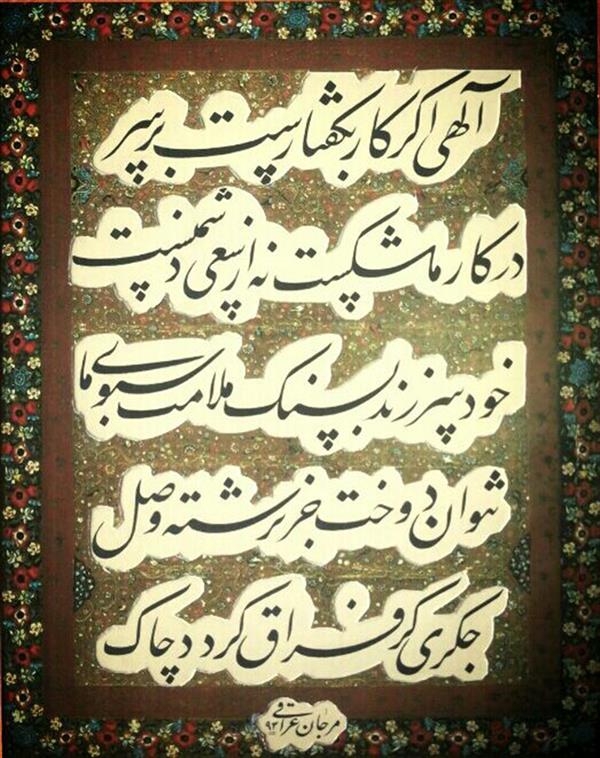 آلهی اگر کار بگفتارست بر سر
در کار ما شکست نه از سعی دشمنست
خود سر زند بسنگ ملامت سبوی ما
نتوان دوخت جز برشته وصل
جگری کز فراق گردد چاک
مرجان عراقی ۹۳